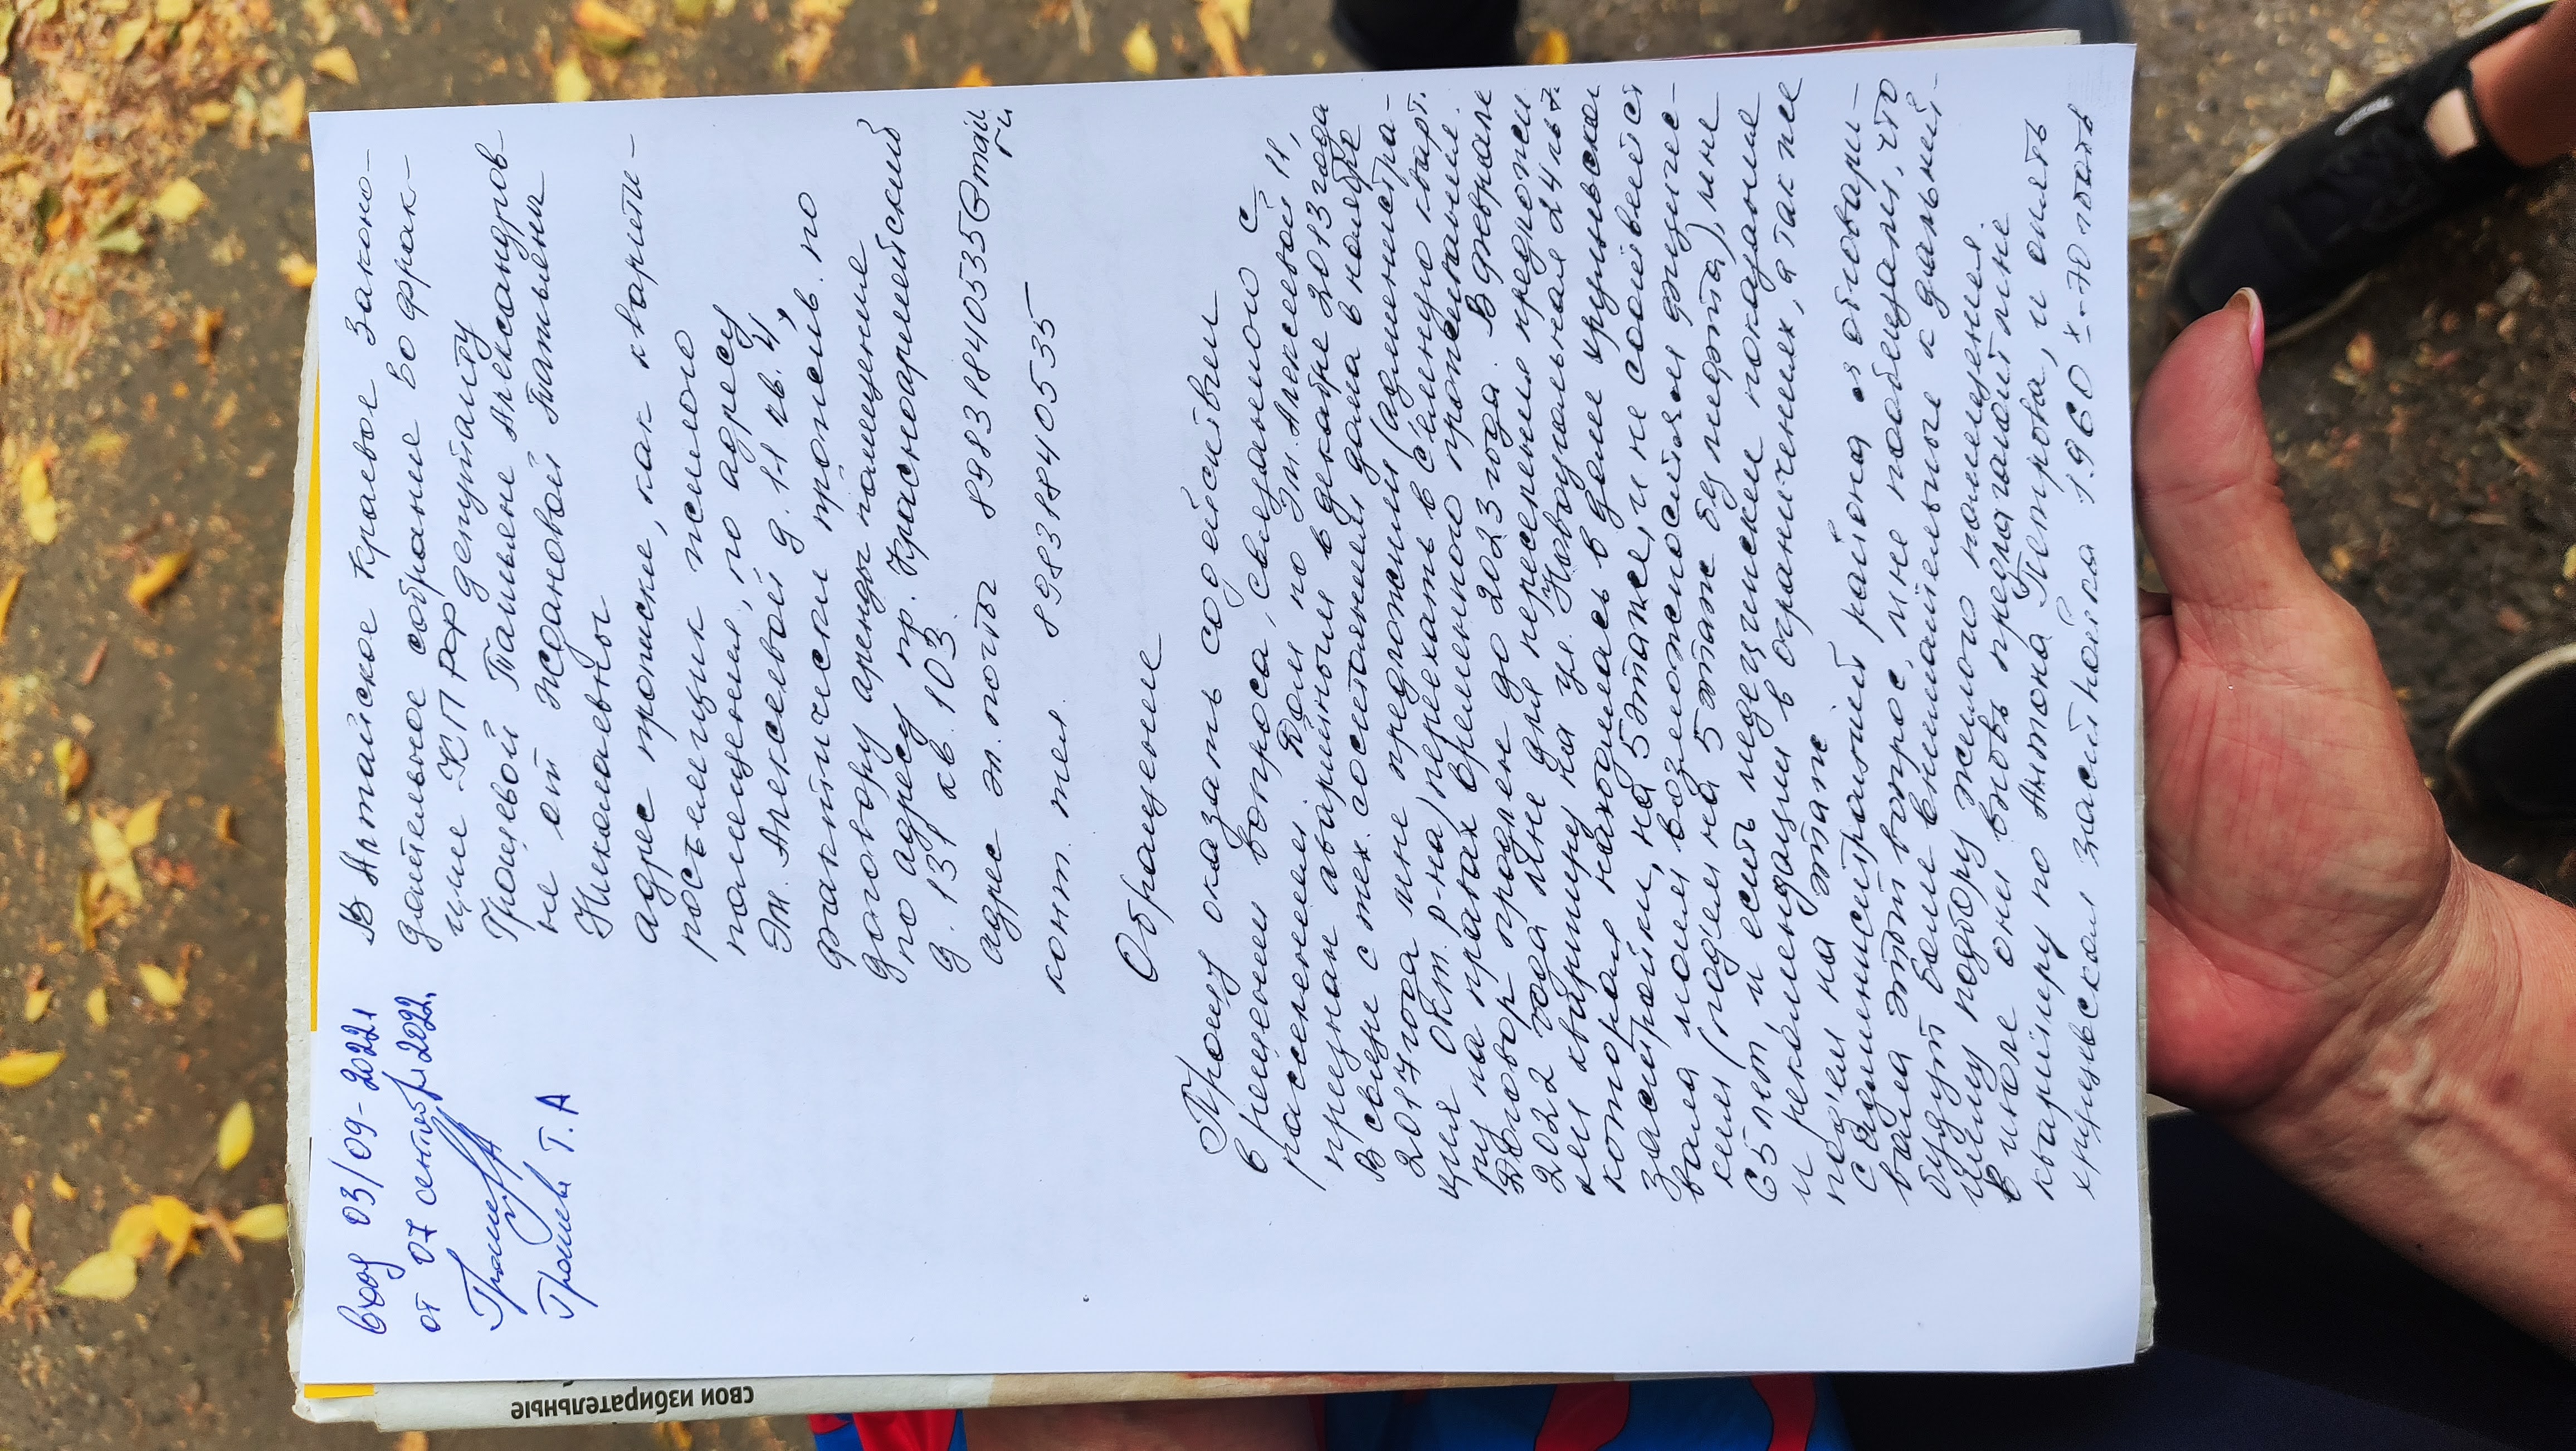 Вход 03/09-2022г
от 07 сентября 2022г.
Грошева Т.А
В Алтайское Краевое Законо-
дательное собрание во фрак-
цию КПРФ депутату
Грошевой Татьяне Александров-
не от Ждановой Татьяны
Николаевны
адрес прописки, как квартиро-
росъемщик жилого
помещения, по адресу
Эм. Алексеевой д. 11 кв. 4,
фактически прожив. по
договору аренды помещение
по адресу пр. Красноармейский
д. 131 кв. 103.
адрес эл. почты 89831840535@mail
ru
конт. тел. 89831840535
Обращение
Прошу оказать содействии
в решении вопроса, связанного с
расселением. Дом по Эм. Алексеевой 11,
признан аварийным в декабре 2013 года
В связи с тех. состоянием дома в ноябре
2017 года мне предложили (администра-
ция Окт. р-на) переехать в съемную кварт.
ру на правах временного проживания.
Договор продлен до 2023 года. В феврале
2022 года мне для переселения предложи
ли квартиру на ул. Новоугольная 24
которая находилась в доме хрущевской
застройки, на 5 этаже, и не соответст
вала моем возможностям физичес-
ким (подъем на 5 этаж без лифта), мне
65 лет и есть медицинские показания
и рекомендации в ограничениях, а так же
под'ем на этаж.
С администрацией района я оговари-
вала этот вопрос, мне пообещали, что
будут более внимательные к дальней-
шему подбору жилого помещения.
В июле они вновь предлагают мне
квартиру по Антона Петрова, и опять
хрущевская застройка 1960х-70 годов
свои избирательные